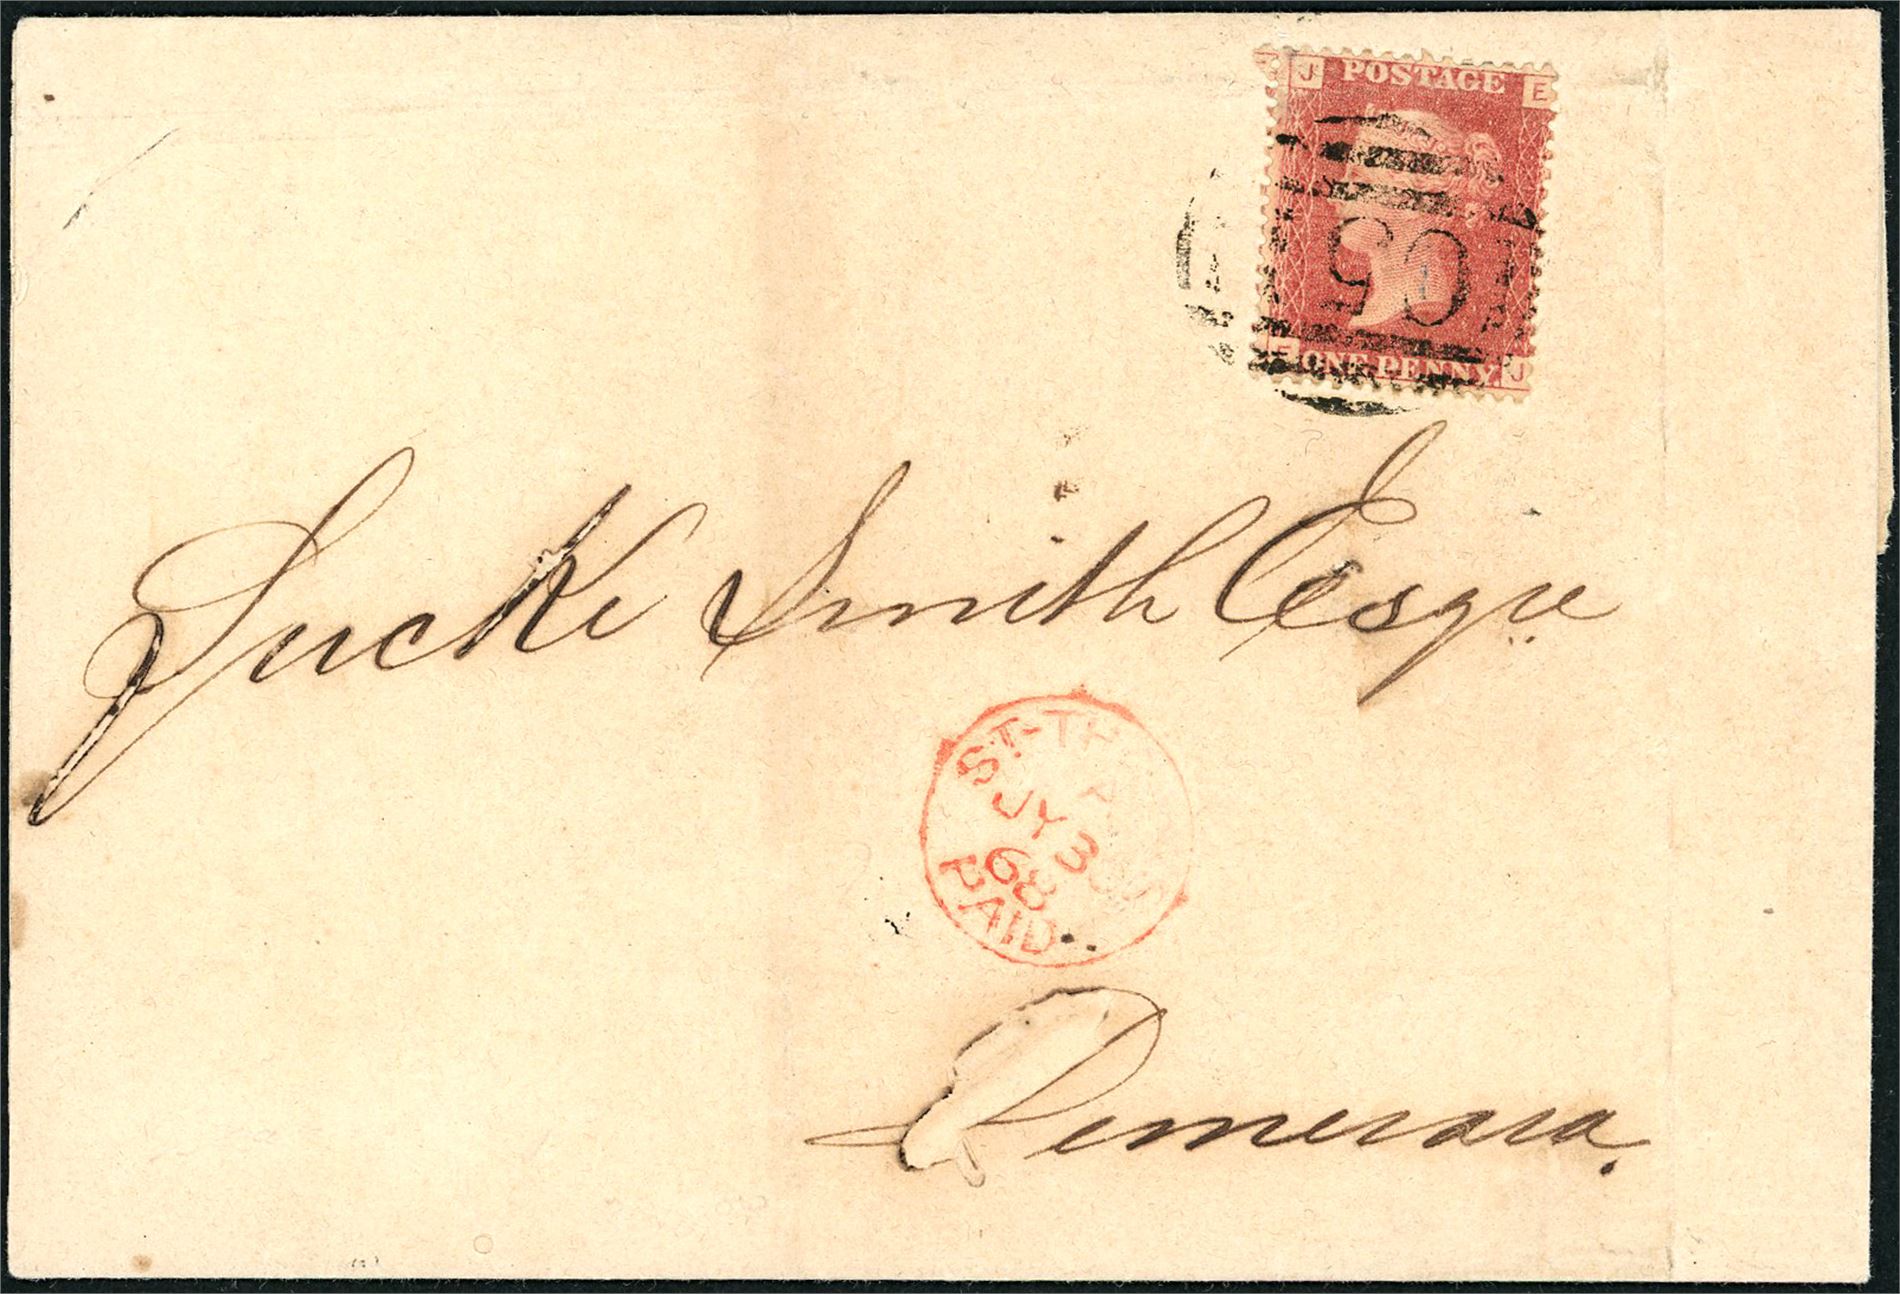 J POSTAGE E
C51
E ONE PENNY. J
Lucke Smith Esqre
ST-TH
A
JY 30
68
PAID
Demerara.